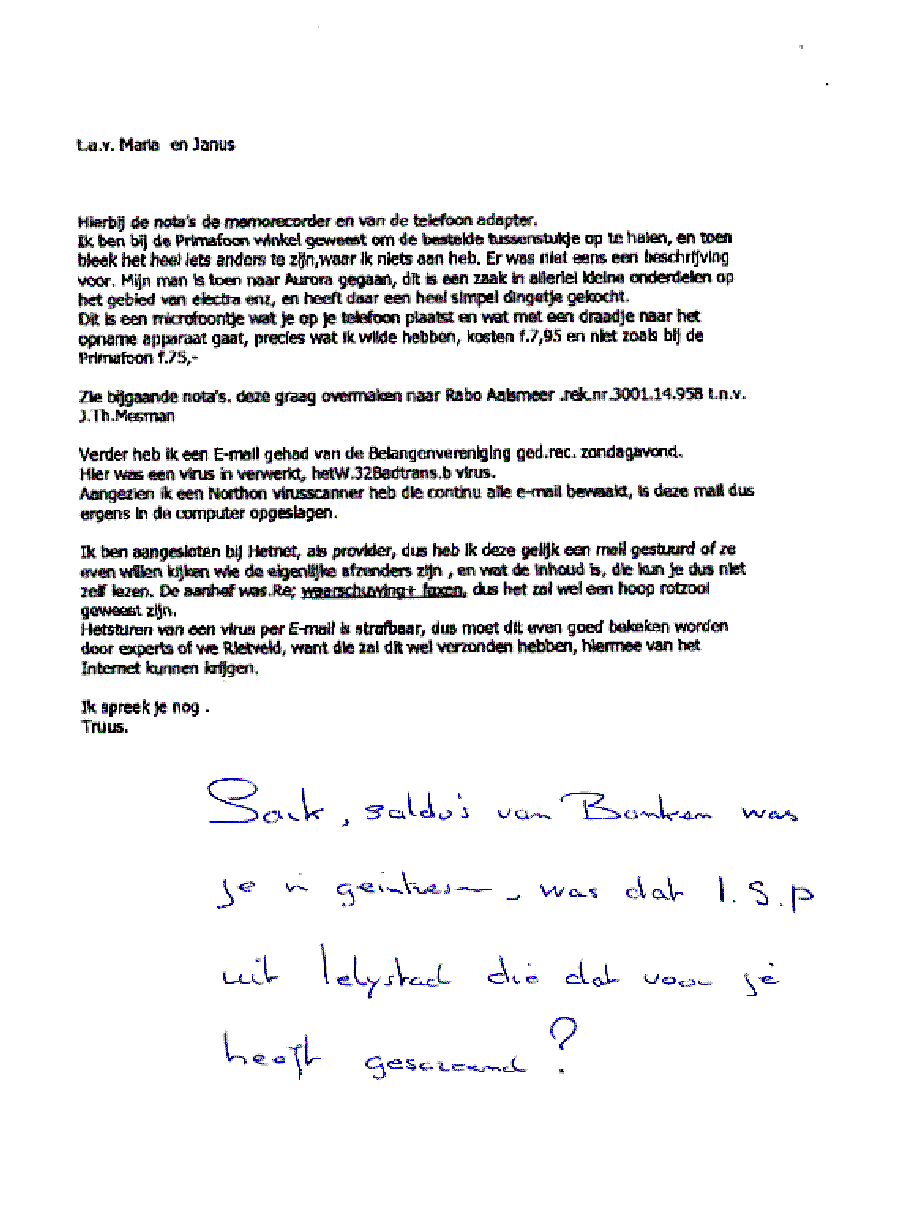 t.a.v. Maria en Janus
Hierbij de nota's de memorecorder en van de telefoon adapter.
Ik ben bij de Primafoon winkel geweest om de bestelde tussenstukje op te halen, en toen
bleek het heel iets anders te zijn,waar ik niets aan heb. Er was niet eens een beschrijving
voor. Mijn man is toen naar Aurora gegaan, dit is een zaak in allerlei kleine onderdelen op
het gebied van electra enz, en heeft daar een heel simpel dingetje gekocht.
Dit is een microfoontje wat je op je telefoon plaatst en wat met een draadje naar het
opname apparaat gaat, precies wat ik wilde hebben, kosten f.7,95 en niet zoals bij de
Primafoon f.75,-
Zie bijgaande nota's. deze graag overmaken naar Rabo Aalsmeer .rek.nr.3001.14.958 t.n.v.
J.Th.Mesman
Verder heb ik een E-mail gehad van de Belangenvereniging ged.rec. zondagavond.
Hier was een virus in verwerkt, hetW.32Badtrans.b virus.
Aangezien ik een Northon virusscanner heb die continu alle e-mail bewaakt, is deze mail dus
ergens in de computer opgeslagen.
Ik ben aangesloten bij Hetnet, als provider, dus heb ik deze gelijk een mail gestuurd of ze
even willen kijken wie de eigenlijke afzenders zijn , en wat de inhoud is, die kun je dus niet
zelf lezen. De aanhef was.Re; waarschuwing+ faxen, dus het zal wel een hoop rotzooi
geweest zijn.
Hetsturen van een virus per E-mail is strafbaar, dus moet dit even goed bekeken worden
door experts of we Rietveld, want die zal dit wel verzonden hebben, hiermee van het
Internet kunnen krijgen.
Ik spreek je nog .
Truus.
, saldo's van Banken was
je in , was dat I.S.P
uit lelystad die dat voor je
heeft gescreend?